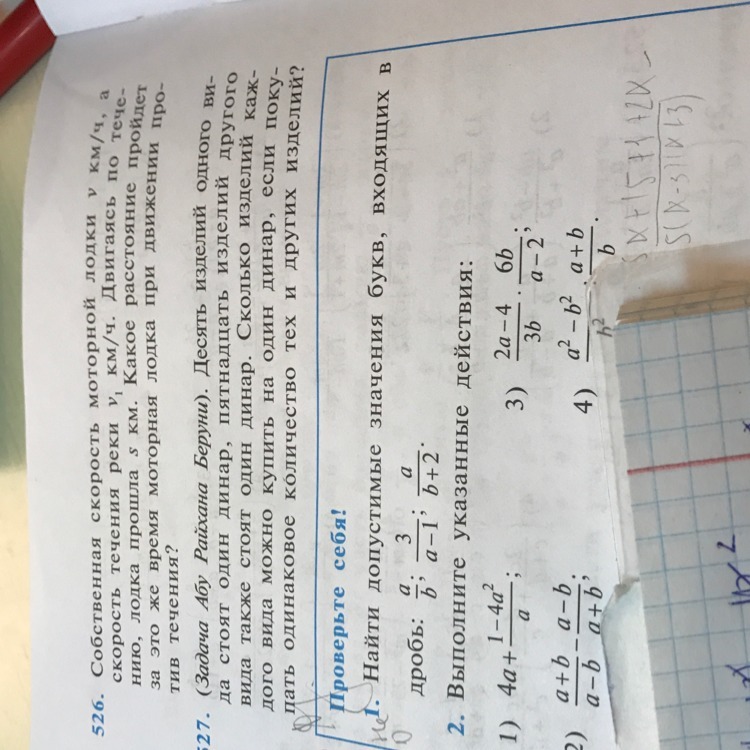 526. Собственная скорость моторной лодки v км/ч, а
скорость течения реки v₁ км/ч. Двигаясь по тече-
нию, лодка прошла s км. Какое расстояние пройдет
за это же время моторная лодка при движении про-
тив течения?
527. (Задача Абу Райхана Беруни). Десять изделий одного ви-
да стоят один динар, пятнадцать изделий другого
вида также стоят один динар. Сколько изделий каж-
дого вида можно купить на один динар, если поку-
пать одинаковое ко́личество тех и других изделий?
Проверьте себя!
1. Найти допустимые значения букв, входящих в
дробь: a/b; 3/(a−1); a/(b+2).
2. Выполните указанные действия:
1) 4a + (1−4a²)/a;
2) (a+b)/(a−b) − (a−b)/(a+b);
3) (2a−4)/3b · 6b/(a−2);
4) (a²−b²)/b² : (a+b)/b.